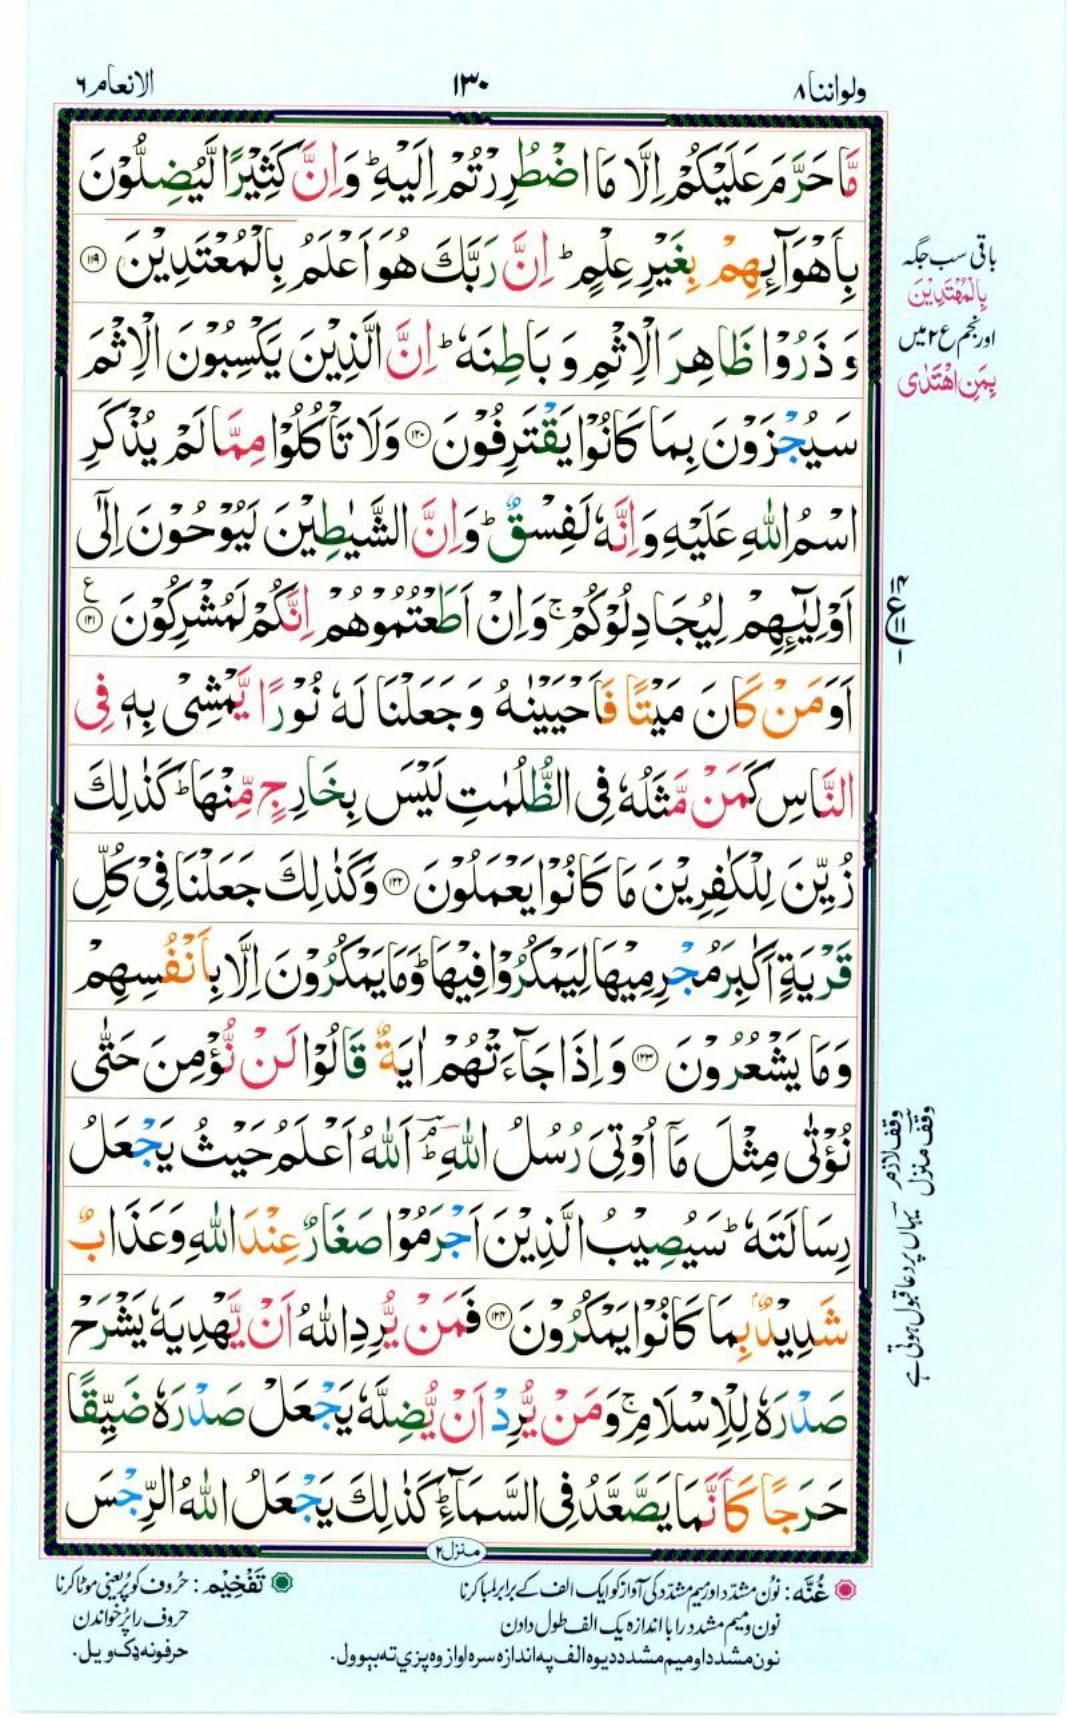 ولواننا ٨
١٣٠
الانعام ٦
مَّا حَرَّمَ عَلَيْكُمْ اِلَّا مَا اضْطُرِرْتُمْ اِلَيْهِ ؕ وَاِنَّ كَثِيْرًا لَّيُضِلُّوْنَ
بِاَهْوَآئِهِمْ بِغَيْرِ عِلْمٍ ؕ اِنَّ رَبَّكَ هُوَ اَعْلَمُ بِالْمُعْتَدِيْنَ ﴿١١٩﴾
وَ ذَرُوْا ظَاهِرَ الْاِثْمِ وَ بَاطِنَهٗ ؕ اِنَّ الَّذِيْنَ يَكْسِبُوْنَ الْاِثْمَ
سَيُجْزَوْنَ بِمَا كَانُوْا يَقْتَرِفُوْنَ ﴿١٢٠﴾ وَلَا تَاْكُلُوْا مِمَّا لَمْ يُذْكَرِ
اسْمُ اللّٰهِ عَلَيْهِ وَ اِنَّهٗ لَفِسْقٌ ؕ وَاِنَّ الشَّيٰطِيْنَ لَيُوْحُوْنَ اِلٰٓى
اَوْلِيٰٓئِهِمْ لِيُجَادِلُوْكُمْ ۚ وَاِنْ اَطَعْتُمُوْهُمْ اِنَّكُمْ لَمُشْرِكُوْنَ ﴿١٢١﴾ ع
اَوَمَنْ كَانَ مَيْتًا فَاَحْيَيْنٰهُ وَ جَعَلْنَا لَهٗ نُوْرًا يَّمْشِىْ بِهٖ فِى
النَّاسِ كَمَنْ مَّثَلُهٗ فِى الظُّلُمٰتِ لَيْسَ بِخَارِجٍ مِّنْهَا ؕ كَذٰلِكَ
زُيِّنَ لِلْكٰفِرِيْنَ مَا كَانُوْا يَعْمَلُوْنَ ﴿١٢٢﴾ وَكَذٰلِكَ جَعَلْنَا فِىْ كُلِّ
قَرْيَةٍ اَكٰبِرَ مُجْرِمِيْهَا لِيَمْكُرُوْا فِيْهَا ؕ وَمَا يَمْكُرُوْنَ اِلَّا بِاَنْفُسِهِمْ
وَمَا يَشْعُرُوْنَ ﴿١٢٣﴾ وَ اِذَا جَآءَتْهُمْ اٰيَةٌ قَالُوْا لَنْ نُّؤْمِنَ حَتّٰى
نُؤْتٰى مِثْلَ مَآ اُوْتِىَ رُسُلُ اللّٰهِ ؕۘ اَللّٰهُ اَعْلَمُ حَيْثُ يَجْعَلُ
رِسَالَتَهٗ ؕ سَيُصِيْبُ الَّذِيْنَ اَجْرَمُوْا صَغَارٌ عِنْدَ اللّٰهِ وَعَذَابٌ
شَدِيْدٌۢ بِمَا كَانُوْا يَمْكُرُوْنَ ﴿١٢٤﴾ فَمَنْ يُّرِدِ اللّٰهُ اَنْ يَّهْدِيَهٗ يَشْرَحْ
صَدْرَهٗ لِلْاِسْلَامِ ۚ وَمَنْ يُّرِدْ اَنْ يُّضِلَّهٗ يَجْعَلْ صَدْرَهٗ ضَيِّقًا
حَرَجًا كَاَنَّمَا يَصَّعَّدُ فِى السَّمَآءِ ؕ كَذٰلِكَ يَجْعَلُ اللّٰهُ الرِّجْسَ
منزل ٢
باقی سب جگہ
بِالْمُهْتَدِيْنَ
اور نجم ع ٢ میں
بِمَنِ اهْتَدٰى
ع
وقف لازم
وقف منزل
یہاں پر دعا قبول ہوتی ہے
غُنَّه : نون مشدد اور میم مشدد کی آواز کو ایک الف کے برابر لمبا کرنا
نون و میم مشدد را با اندازه یک الف طول دادن
نون مشدد او میم مشدد دیوه الف په اندازه سره اواز وه پزې ته بېوول.
تَفْخِيْم : حُروف کو پُر یعنی موٹا کرنا
حروف را پُر خواندن
حرفونه ډک ویل.